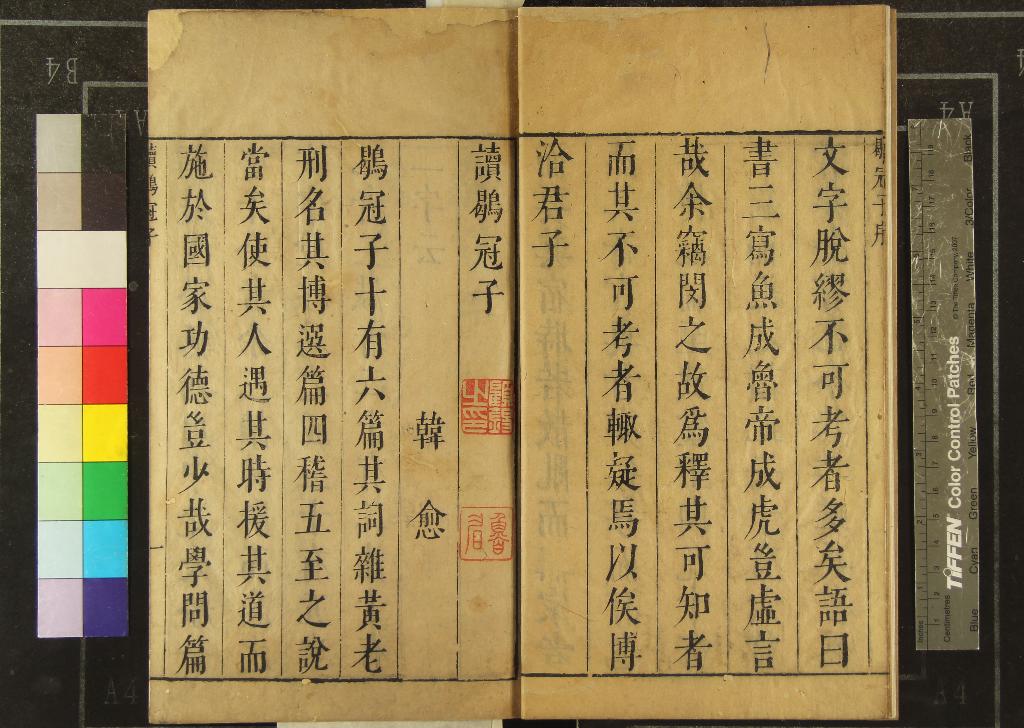 文字脫繆不可考者多矣語曰
書三寫魚成魯帝成虎豈虛言
哉余竊閔之故爲釋其可知者
而其不可考者輙疑焉以俟博
洽君子
讀鶡冠子
韓愈
鶡冠子十有六篇其詞雜黃老
刑名其博選篇四稽五至之說
當矣使其人遇其時援其道而
施於國家功德豈少哉學問篇
讀鶡冠子
一
B4
A4
A4
A4
TIFFEN Color Control Patches
© The Tiffen Company, 2007
Inches
Centimetres
Blue
Cyan
Green
Yellow
Red
Magenta
White
3/Color
Black